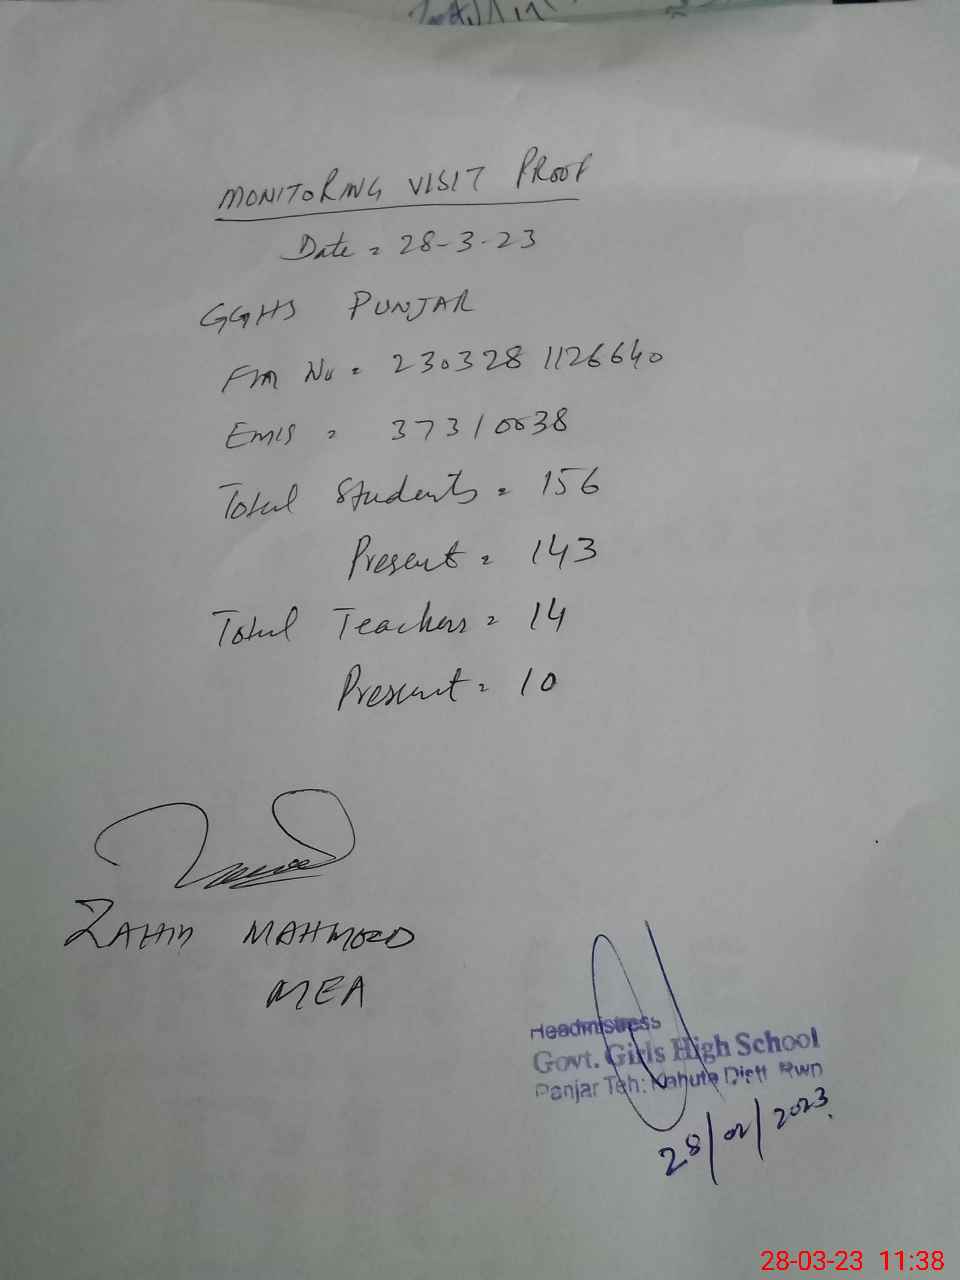 MONITORING VISIT PROOF
Date = 28-3-23
GGHS PUNJAR
Fm No = 230328 1126640
Emis = 37310038
Total Students = 156
Present = 143
Total Teachers = 14
Present = 10
ZAHID MAHMOOD
MEA
Headmistress
Govt. Girls High School
Panjar Teh: Kahuta Distt Rwp
28/02/2023.
28-03-23 11:38